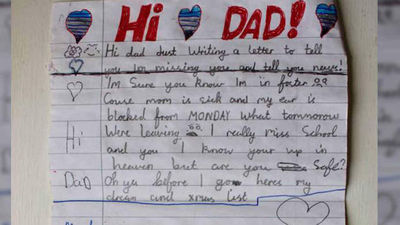 Hi DAD!
Hi dad Just Writing a letter to tell
you Im missing you and tell you news!
I'm Sure you know Im in foster
Couse mom is sick and my ear is
blocked from MONDAY What tommorow
Hi Were leaving I really miss School
and you I know your up in
heaven but are you Safe?
Dad Oh ya before I go heres my
dream and xmas list